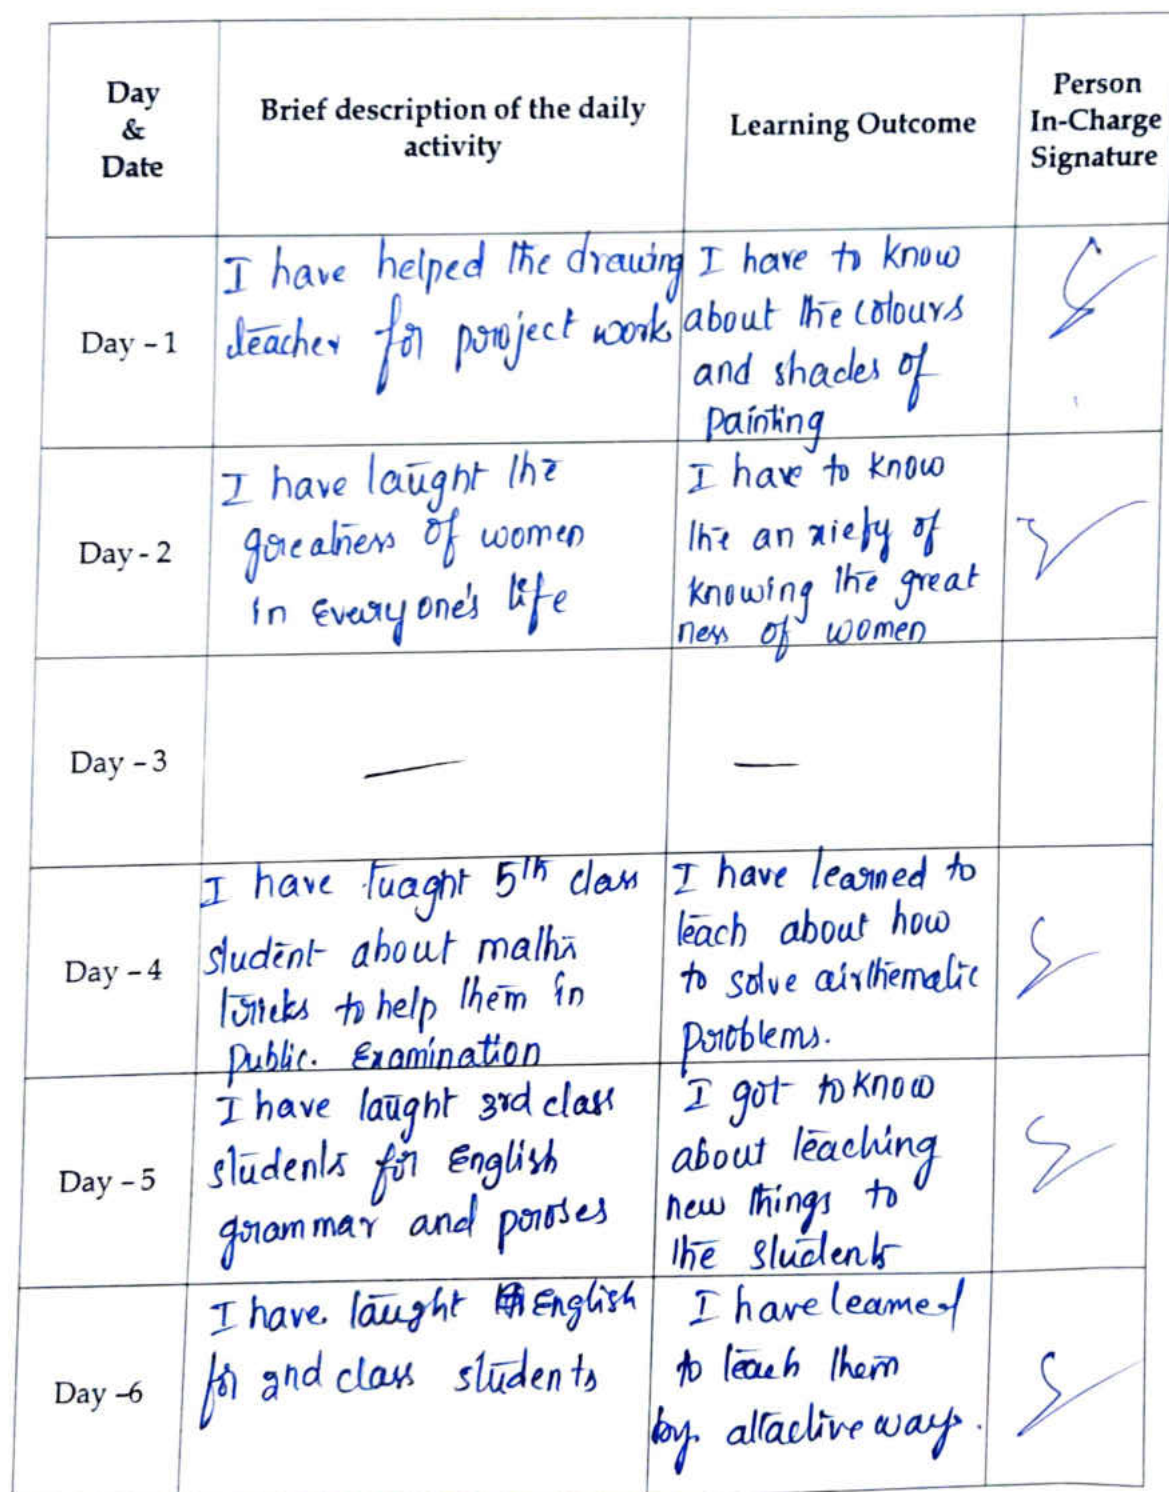 Day
&
Date
Brief description of the daily
activity
Learning Outcome
Person
In-Charge
Signature
Day - 1
I have helped the drawing
teacher for project work
I have to know
about the colours
and shades of
painting
Day - 2
I have taught the
greatness of women
in everyone's life
I have to know
the anxiety of
knowing the great
ness of women
Day - 3
—
—
Day - 4
I have tuaght 5th class
student about maths
tricks to help them in
public. Examination
I have learned to
teach about how
to solve airthematic
problems.
Day - 5
I have taught 3rd class
students for English
grammar and proses
I got to know
about teaching
new things to
the students
Day -6
I have taught English
for 2nd class students
I have learned
to teach them
by attactive way.